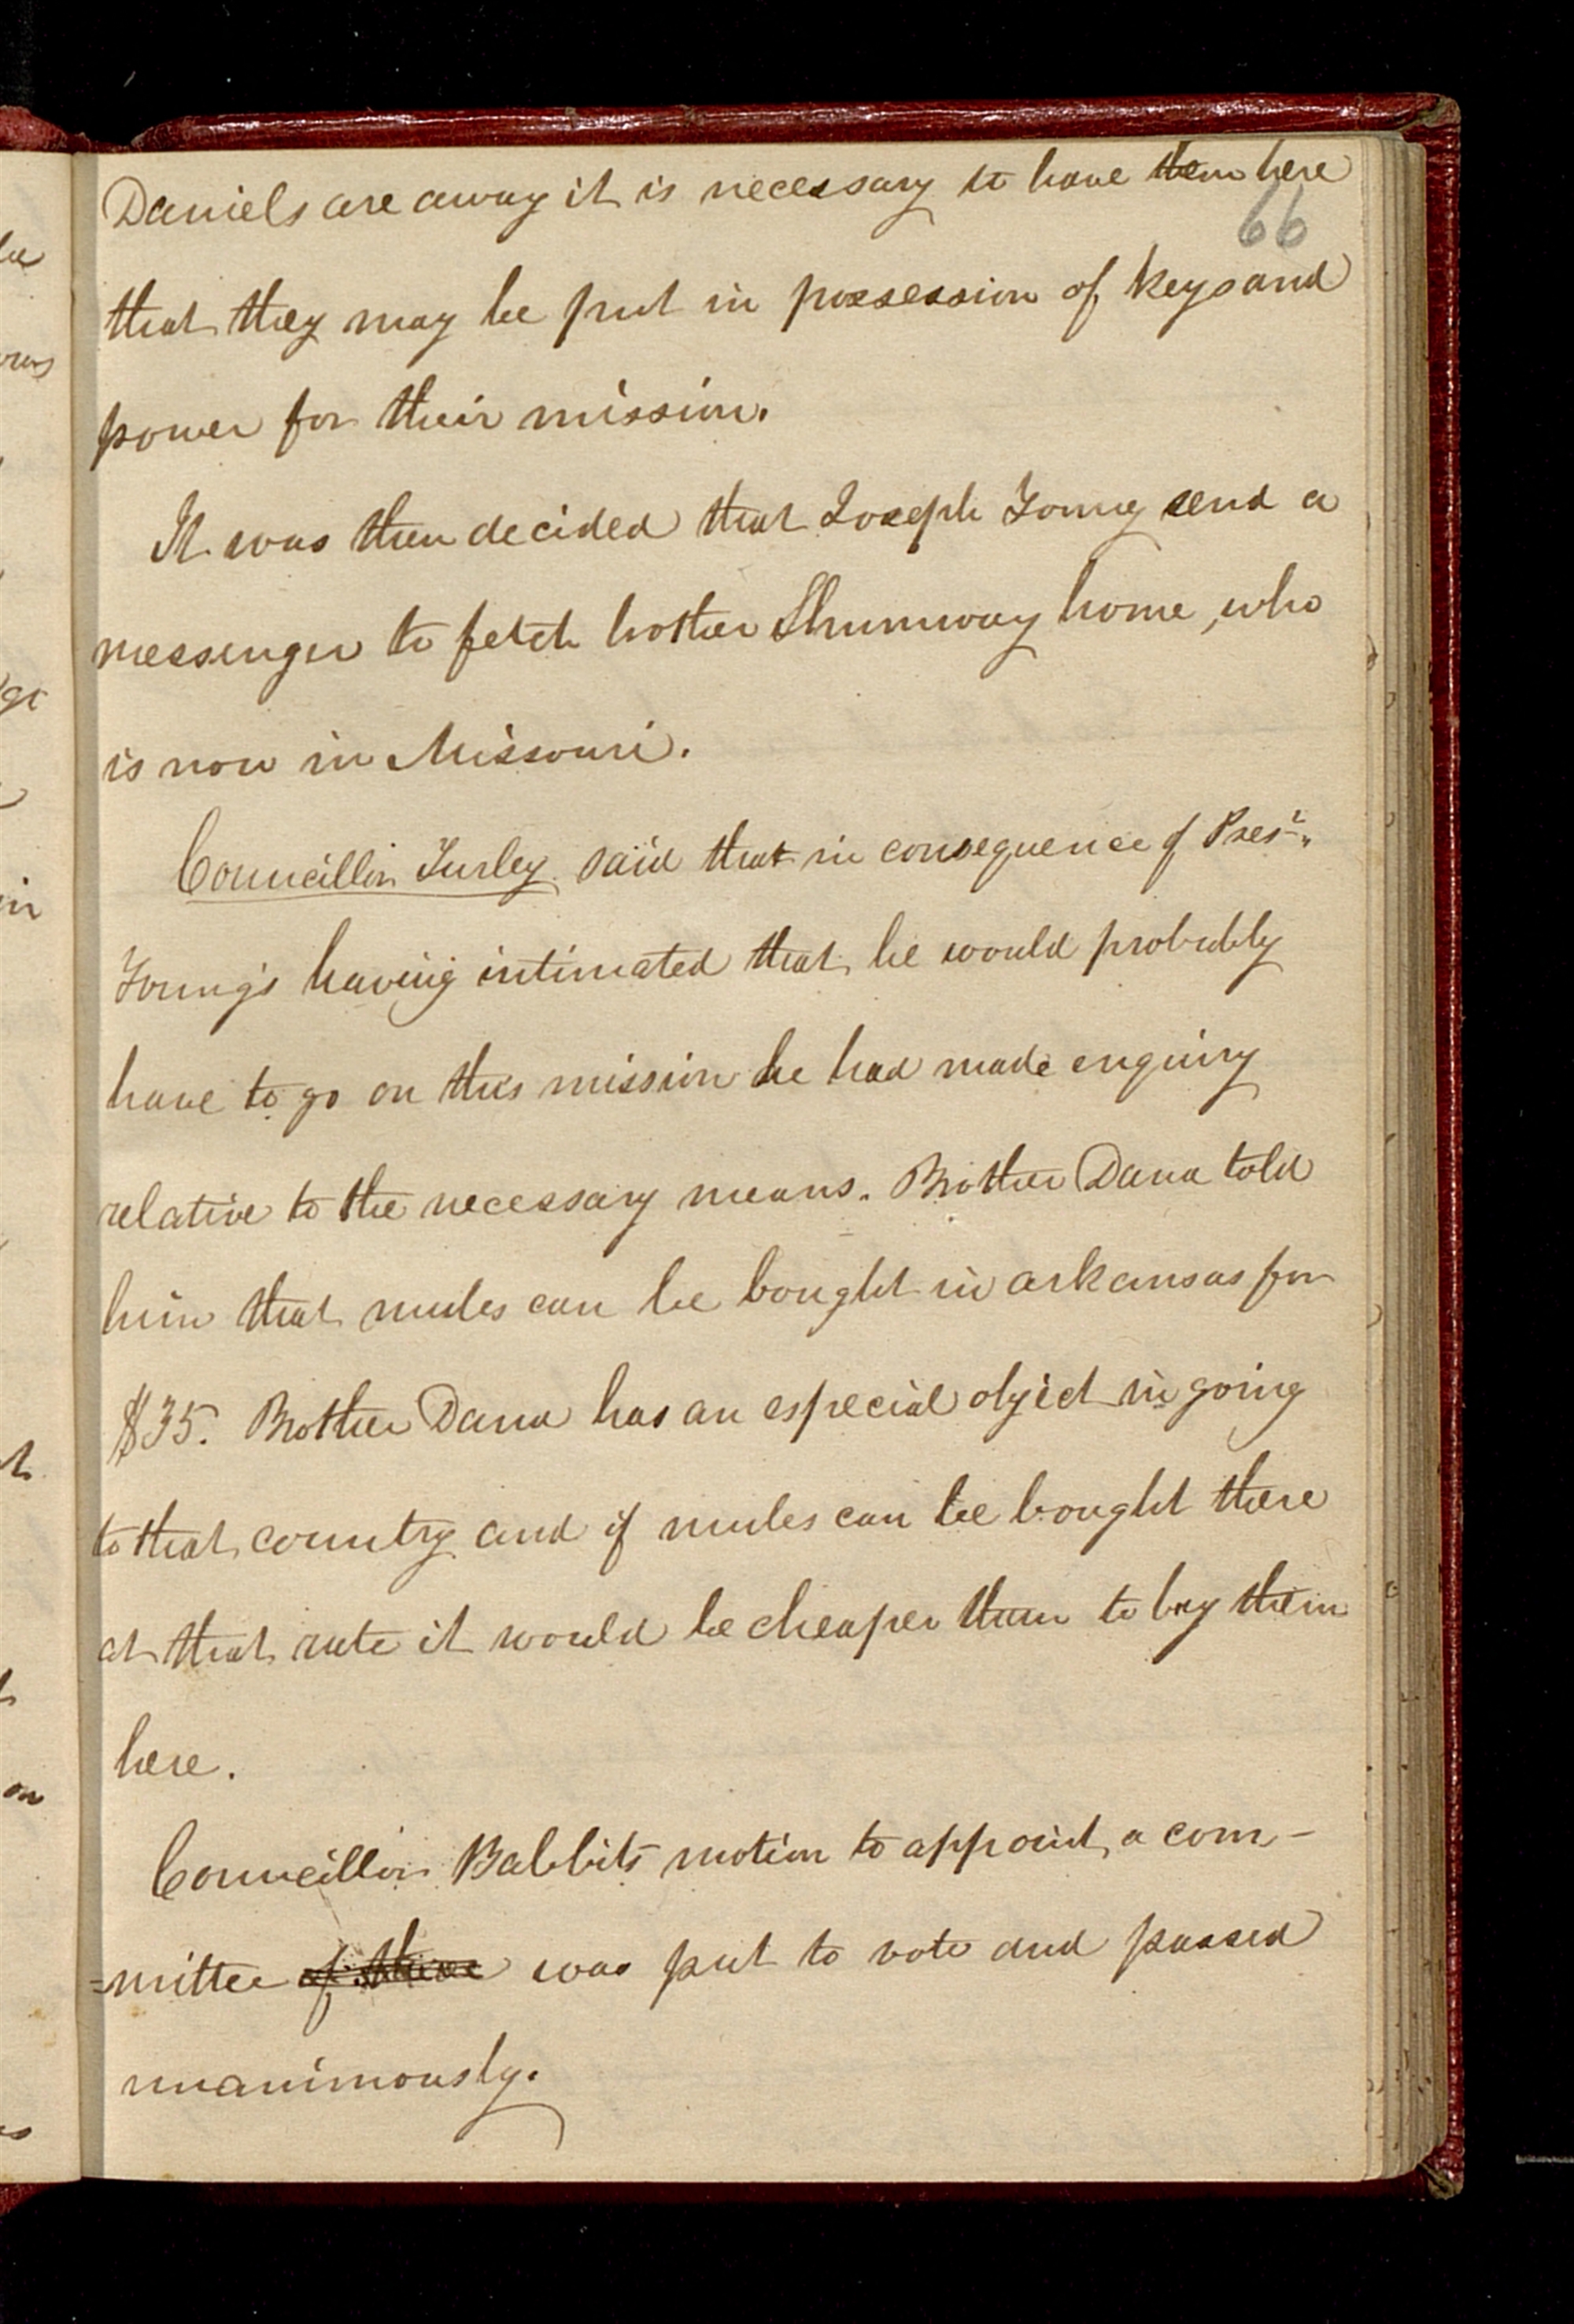 Daniels are away it is necessary to have them here
66
that they may be put in possession of keys and
power for their mission.
It was then decided that Joseph Young send a
messenger to fetch brother Shumway home, who
is now in Missouri.
Councillor Turley said that in consequence of Pres.t
Young's having intimated that he would probably
have to go on this mission he had made enquiry
relative to the necessary means. Brother Dana told
him that mules can be bought in arkansas for
$35. Brother Dana has an especial object in going
to that country and if mules can be bought there
at that rate it would be cheaper than to buy them
here.
Councillor Babbits motion to appoint a com-
=mittee of three was put to vote and passed
unanimously.